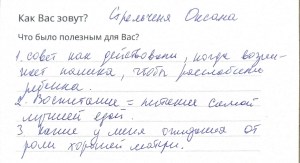 Как Вас зовут? Стрельченя Оксана
Что было полезным для Вас?
1. совет как действовать, когда возни-
кает паника, чтобы расслабить
ребенка.
2. Воспитание = питание самой
лучшей едой.
3. какие у меня ожидания от
роли хорошей матери.